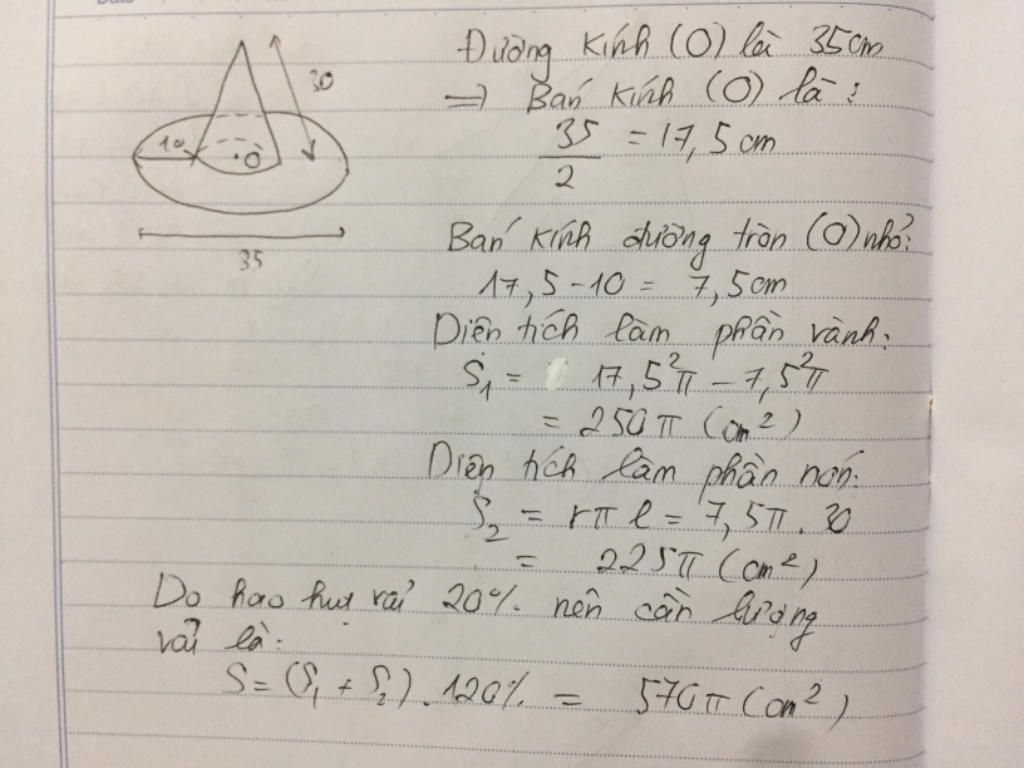 Đường kính (O) là 35cm
30
⇒ Bán kính (O) là:
35/2 = 17,5cm
10
O
35
Bán kính đường tròn (O) nhỏ:
17,5 - 10 = 7,5cm
Diện tích làm phần vành:
S₁ = 17,5²π - 7,5²π
= 250π (cm²)
Diện tích làm phần nón:
S₂ = rπl = 7,5π . 30
= 225π (cm²)
Do hao hụt vải 20% nên cần lượng
vải là:
S = (S₁ + S₂) . 120% = 570π (cm²)